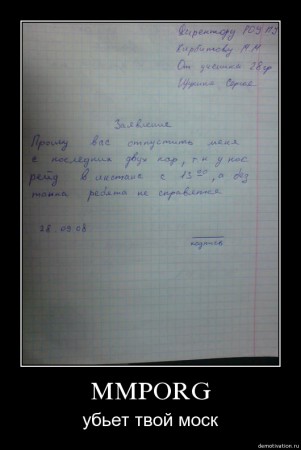 Директору
От ученика 28 гр
Заявление
Прошу вас отпустить меня
с последних двух пар, т.к. у нас
рейд в инстанс с 13:00, а без
танка ребята не справятся
28.09.08
подпись
MMPORG
убьет твой моск
demotivation.ru